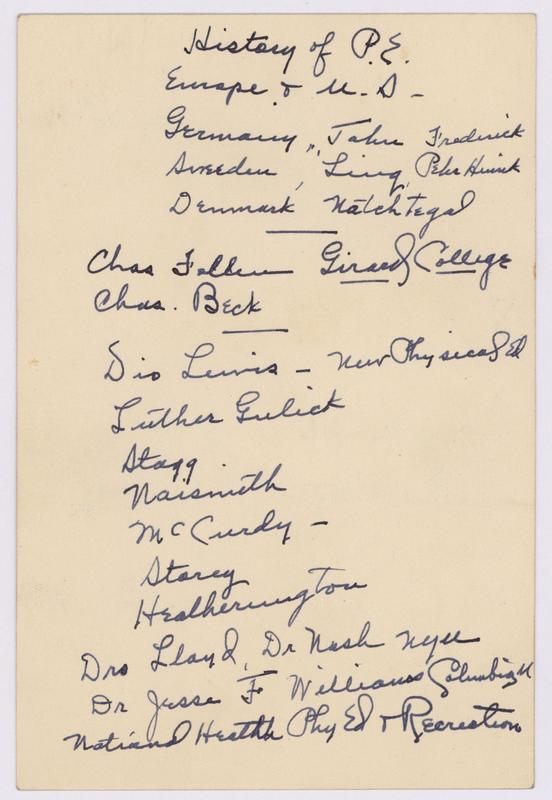 History of P.E.
Europe & U.S -
Germany, Jahn Frederick
Sweeden, Ling, Pehr Henrik
Denmark Natchtegal
Chas Follen Girard College
Chas. Beck
Dio Lewis - New Physical Ed
Luther Gulick
Stagg
Naismith
McCurdy -
Storey
Heatherington
Drs Lloyd, Dr Nash NYU
Dr Jesse F Williams Columbia U
National Health Phy Ed & Recreation